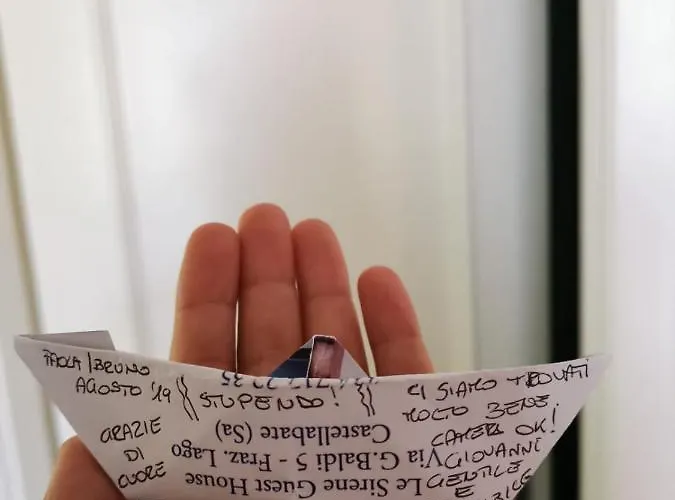 PAOLA / BRUNO
AGOSTO '19
GRAZIE
DI
CUORE
STUPENDO!
CI SIAMO TROVATI
MOLTO BENE
CAMERA OK!
GIOVANNI
GENTILE
E
Le Sirene Guest House
Via G.Baldi 5 - Fraz. Lago
Castellabate (Sa)